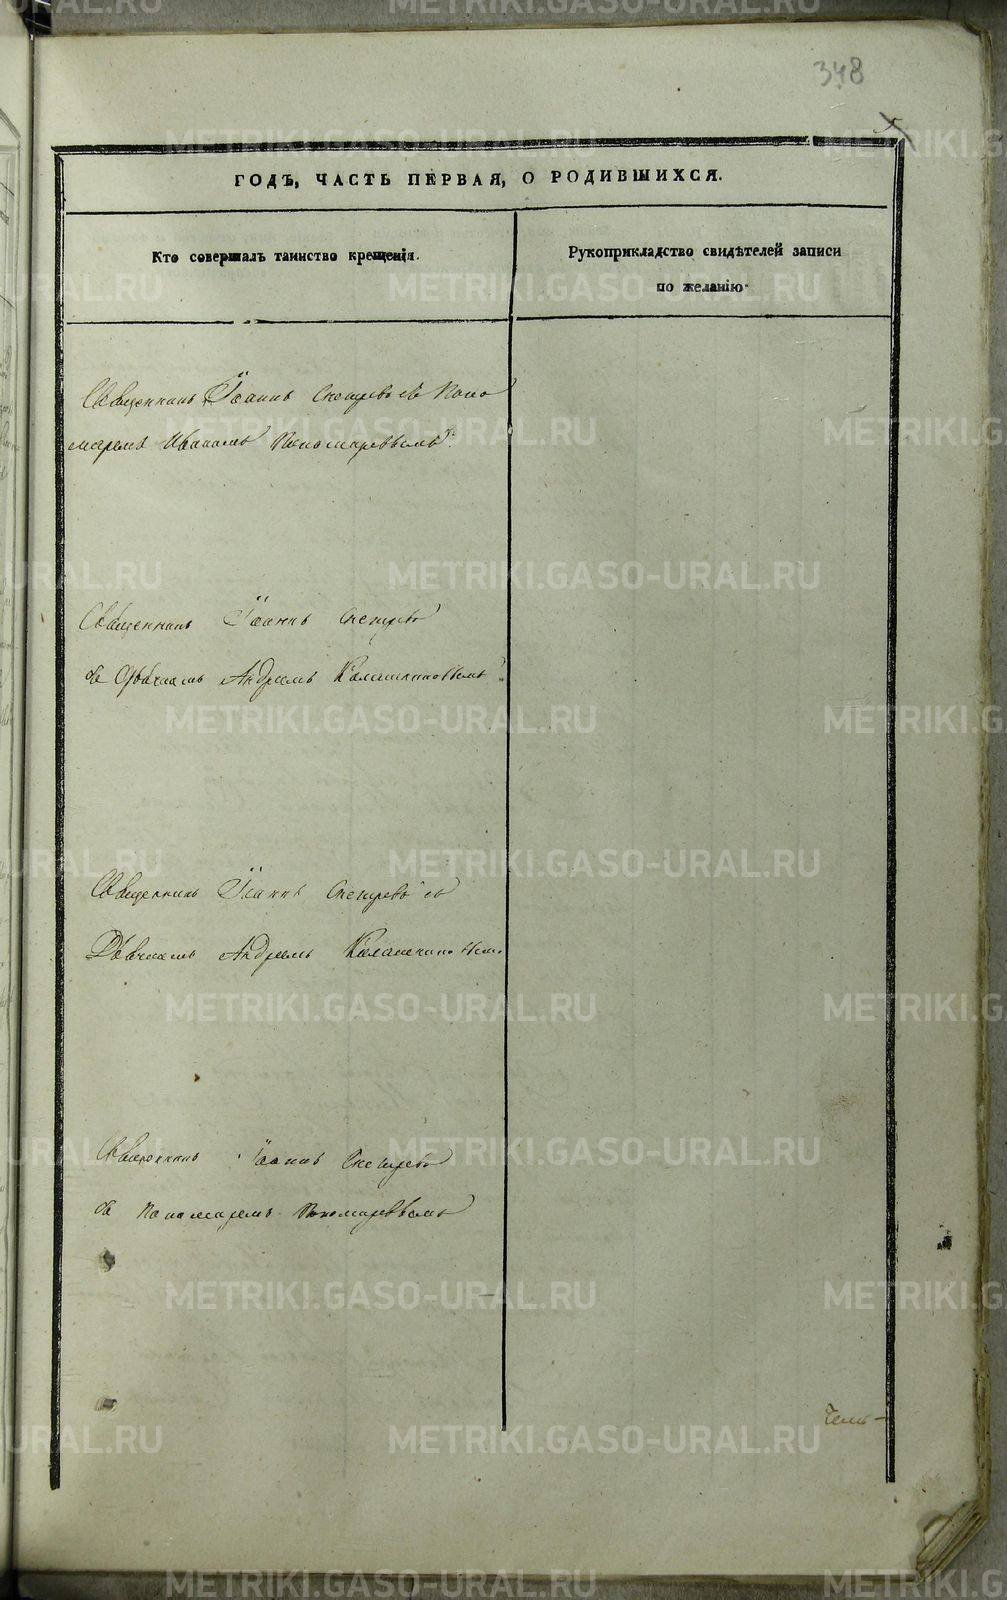 348
5
ГОДЪ, ЧАСТЬ ПЕРВАЯ, О РОДИВШИХСЯ.
Кто совершалъ таинство крещенія.
Рукоприкладство свидѣтелей записи
по желанію
Священникъ Іоаннъ съ Поно
маремъ Иваномъ Пономаревымъ
Священникъ Іоаннъ
съ Андреемъ Калашниковымъ
Священникъ Іоаннъ съ
Андреемъ Калашниковымъ
Священникъ Іоаннъ
съ Пономаремъ Пономаревымъ
METRIKI.GASO-URAL.RU